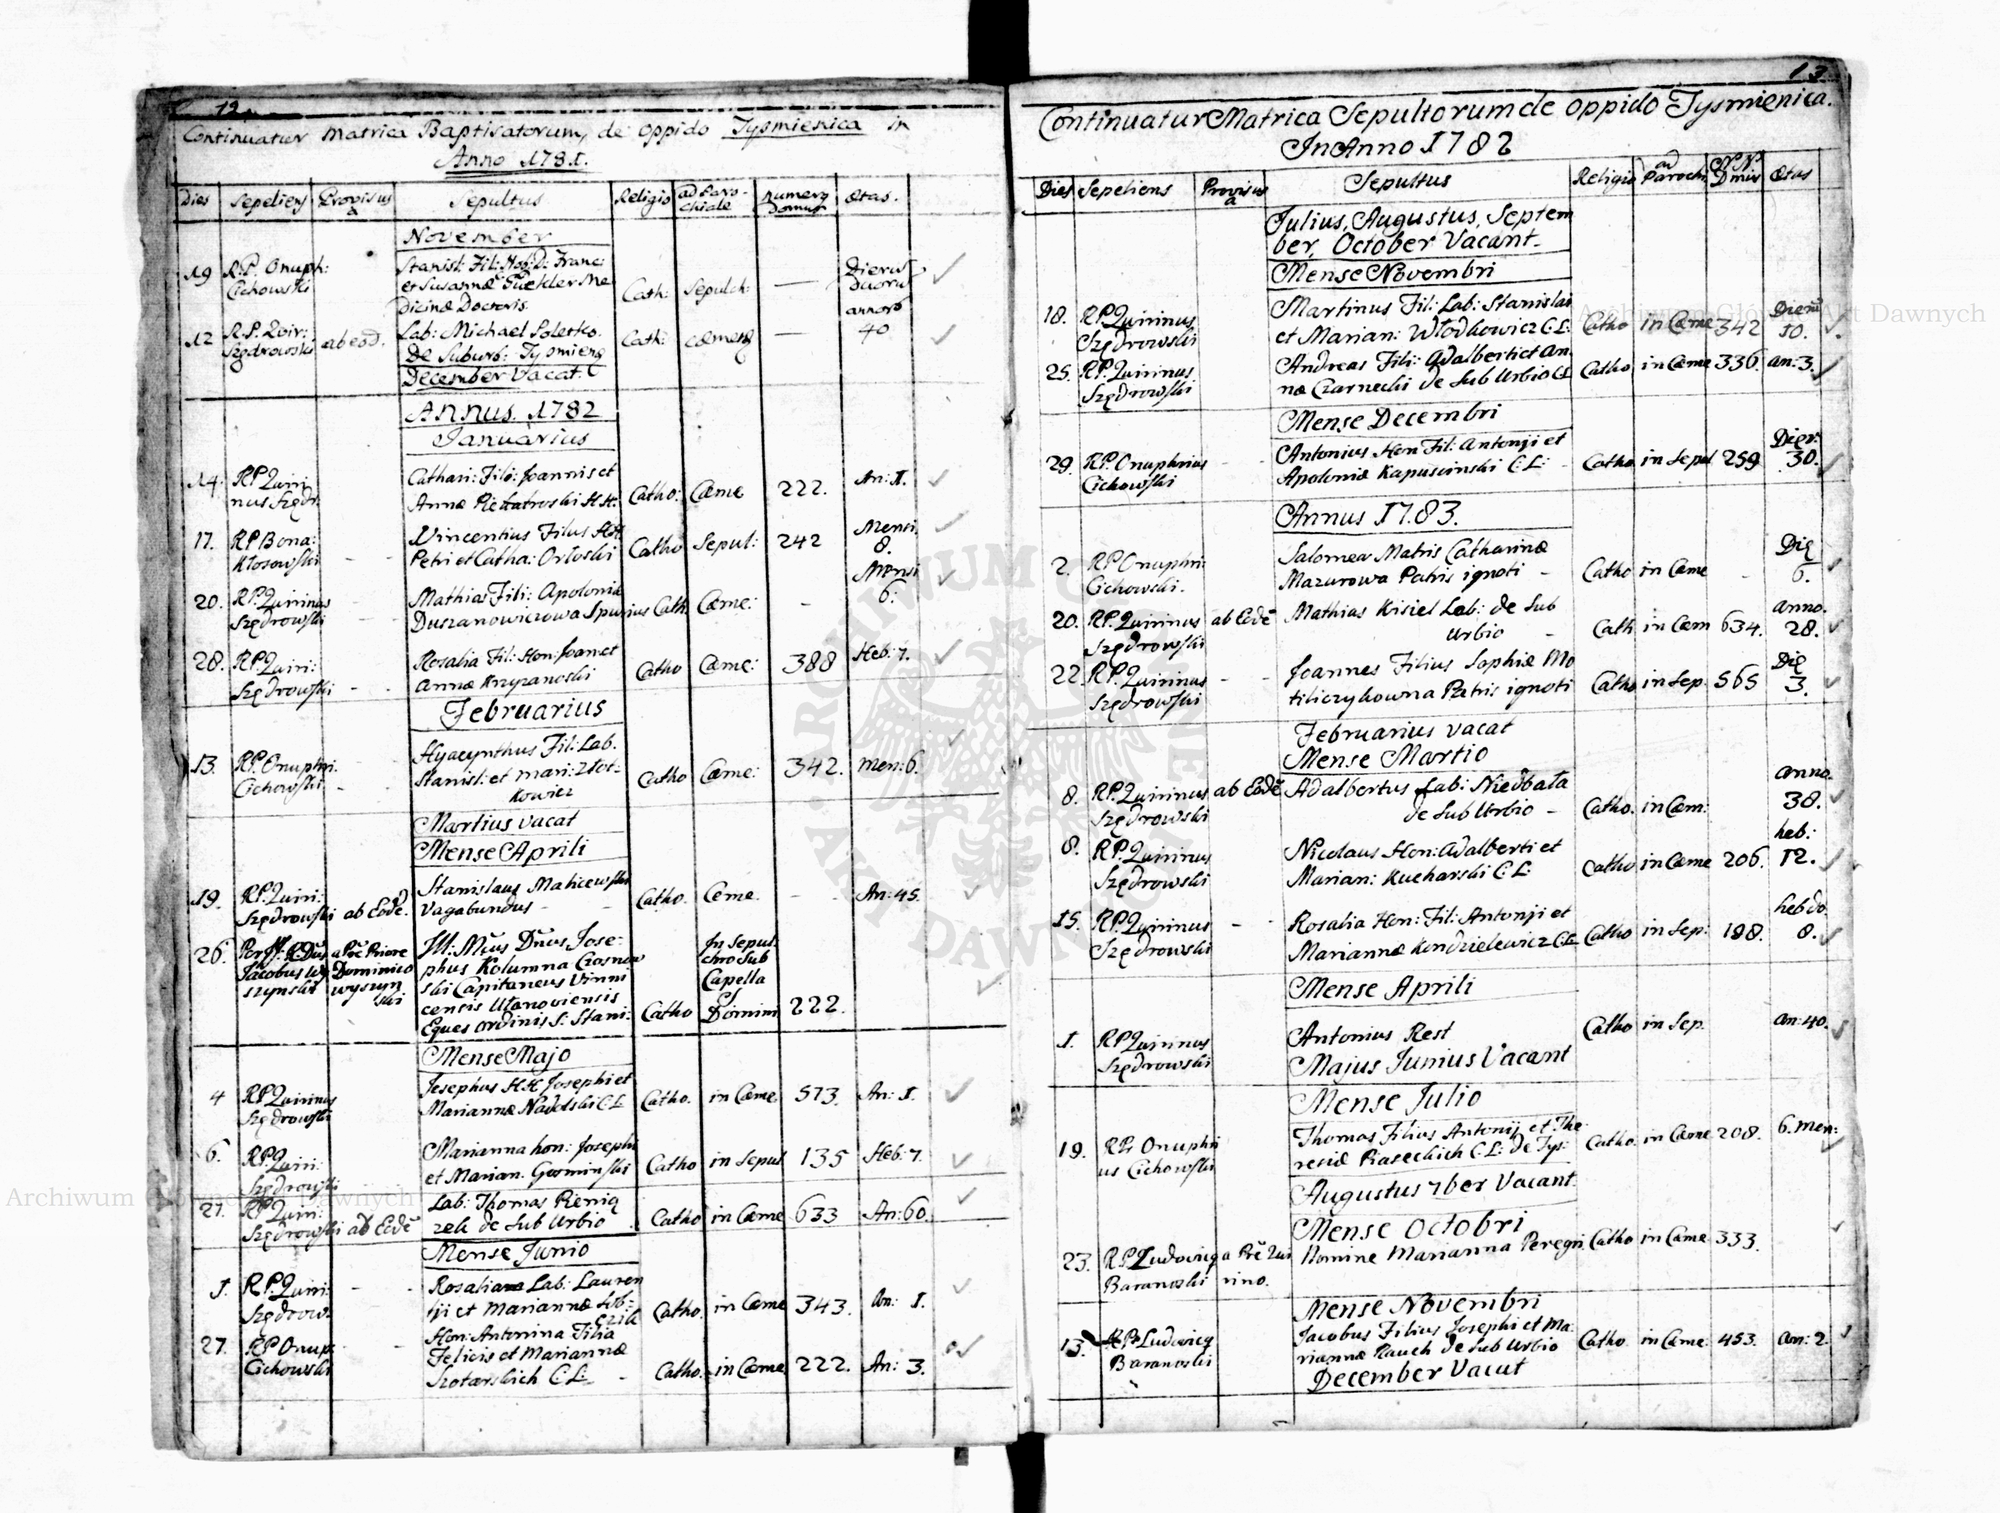 12
Continuatur Matrica Baptisatorum, de oppido Tysmienica in
Anno 1781.
Dies Sepeliens Provisus a Sepultus Religio ad Paro-chiale numerq Domus Ætas.
November
19 R.P. Onuph: Cichowski
Stanisl: Fil: Nob: D: Franc:
et Susannæ Me
dicinæ Doctoris
Cath: Sepulch: — Dierus Duorus
12 R.P. Qvir: Szędrowski ab eod.
Lab: Michael Soletko.
De Suburb: Tysmienq
Cath: cæmenq — annoro 40
December Vacat.
Annus. 1782
Januarius
14. R.P. Quiri nus Szędr.
Cathari: Filia Joannis et
Annæ H.H.
Catho: Cæme 222. An: 1.
17. R.P. Bona: Kłosowski - -
Vincentius Filius H.H.
Petri et Catha: Orłoski
Catho Sepul: 242 Mensi. 8.
20. R.P. Quirinus Szędrowski
Mathias Fili: Apolonia
Duszanowiczowa Spurius Cath. Cæme: - Mensi 6:
28. R.P. Quiri: Szędrowski - -
Rosalia Fil: Hon: Joan et
Annæ Krzyzanoski
Catho Cæme: 388 Heb: 7.
Februarius
13. R.P. Onuphri. Cichowski.
Hyacynthus Fil: Lab.
Stanisl: et mari: Włot-
kowicz
Catho Cæme: 342. men: 6.
Martius vacat
Mense Aprili
19. R.P. Quiri: Szędrowski ab Eodē.
Stanislaus Maticewski
Vagabundus - -
Catho. Ceme. - An: 45.
26. Per Jacobus Wy szynski a Pře Priore Dominico wyszyn ski
Ill: Mŭs Dŭus Jose-
phus Kolumna Czosnow
ski Capitaneus Vinni
censis Ułanoviensis
Eques ordinis S: Stani:
Catho In Sepul. chro Sub Capella Domini 222.
Mense Majo
4 R.P. Quirinus Szędrowski
Josephus H.H. Josephi et
Mariannæ Nadolski C.L.
Catho. in Cæme 573. An: 1.
6. R.P. Quiri: Szędrowski
Marianna hon: Josephi
et Marian.
Catho in Sepul 135 Heb: 7.
27. R.P. Quiri: Szędrowski ab Eodē
Lab: Thomas
de Sub Urbio
Catho in Cæme 633 An: 60.
Mense Junio
1. R.P. Quiri: Szędrow. - -
Rosaliana Lab: Lauren
tji et Mariannæ
Catho. in Cæme 343. An: 1.
27. R.P. Onup. Cichowski - -
Hon: Antonina Filia
Felicis et Mariannæ
C.L: -
Catho. in Cæme 222. An: 3.
13
Continuatur Matrica Sepultorum de oppido Tysmienica.
In Anno 1782
Dies Sepeliens Provisus a Sepultus Religio ad Paroch. N.N. Dmus Ætas
Julius, Augustus, Septem
ber, October Vacant.
Mense Novembri
18. R.P. Quirinus Szędrowski
Martinus Fil: Lab: Stanislai
et Marian: Włodkowicz C.L:
Catho in Cæme 342 Dierū 10.
25. R.P. Quirinus Szędrowski
Andreas Fili: Adalberti et An.
næ Czarnecki de Sub Urbio C.L
Catho in Cæme 336. an: 3.
Mense Decembri
29. R.P. Onuphrius Cichowski - -
Antonius Hon Fil: Antonji et
Apoloniæ Kapuscinski C.L: -
Catho in Sepul 259 Dier: 30.
Annus 1783.
2. R.P. Onuphri: Cichowski. - -
Salomea Matris Catharinæ
Mazurowa Patris ignoti -
Catho in Cæme - Die 6.
20. R.P. Quirinus Szędrowski ab Eodē
Mathias Kisiel Lab: de Sub
Urbio -
Cath in Cæm 634. anno. 28.
22. R.P. Quirinus Szędrowski - -
Joannes Filius Sophiæ Mo
tiliczykowna Patris ignoti
Catho in Sep. 565 Die 3.
Februarius vacat
Mense Martio
8. R.P. Quirinus Szędrowski ab Eodē
Adalbertus Lab: Niedbała
de Sub Urbio -
Catho. in Cæm: anno. 38.
8. R.P. Quirinus Szędrowski
Nicolaus Hon: Adalberti et
Marian: Kucharski C.L:
Catho in Cæme 206. heb: 12.
15. R.P. Quirinus Szędrowski - -
Rosalia Hon: Fil: Antonji et
Mariannæ Kondzielewicz C.L.
Catho in Sep: 188. hebdo. 8.
Mense Aprili
1. R.P. Quirinus Szędrowski
Antonius Rest
Catho in Sep. an: 40.
Majus Junius Vacant
Mense Julio
19. R.P. Onuphri us Cichowski
Thomas Filius Antonij et The
resiæ Piaseckich C.L: de Tys:
Catho. in Cæme 208. 6. men:
Augustus 7ber Vacant
Mense Octobri
23. R.P. Ludovicq Baranoski a Přē Qui rino.
Nomine Marianna Peregri.
Catho in Cæme 333.
Mense Novembri
13. R.P. Ludovicq Baranoski
Jacobus Filius Josephi et Ma
riannæ Rauch de Sub Urbio
Catho. in Cæme. 453. an: 2.
December Vacat
Archiwum Główne Akt Dawnych
Archiwum Główne Akt Dawnych
ARCHIWUM GŁÓWNE
AKT DAWNYCH